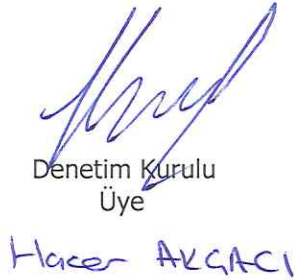 Denetim Kurulu
Üye
Hacer AKGACI